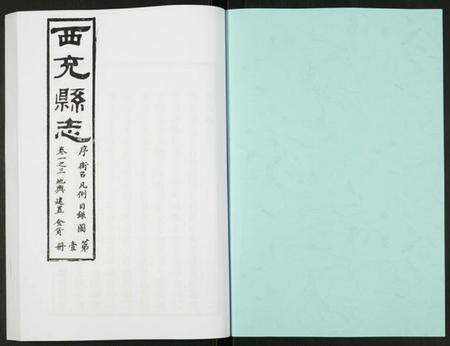 西充縣志
序 銜名 凡例 目錄 圖
卷一之三 地輿 建置 食貨
第壹冊